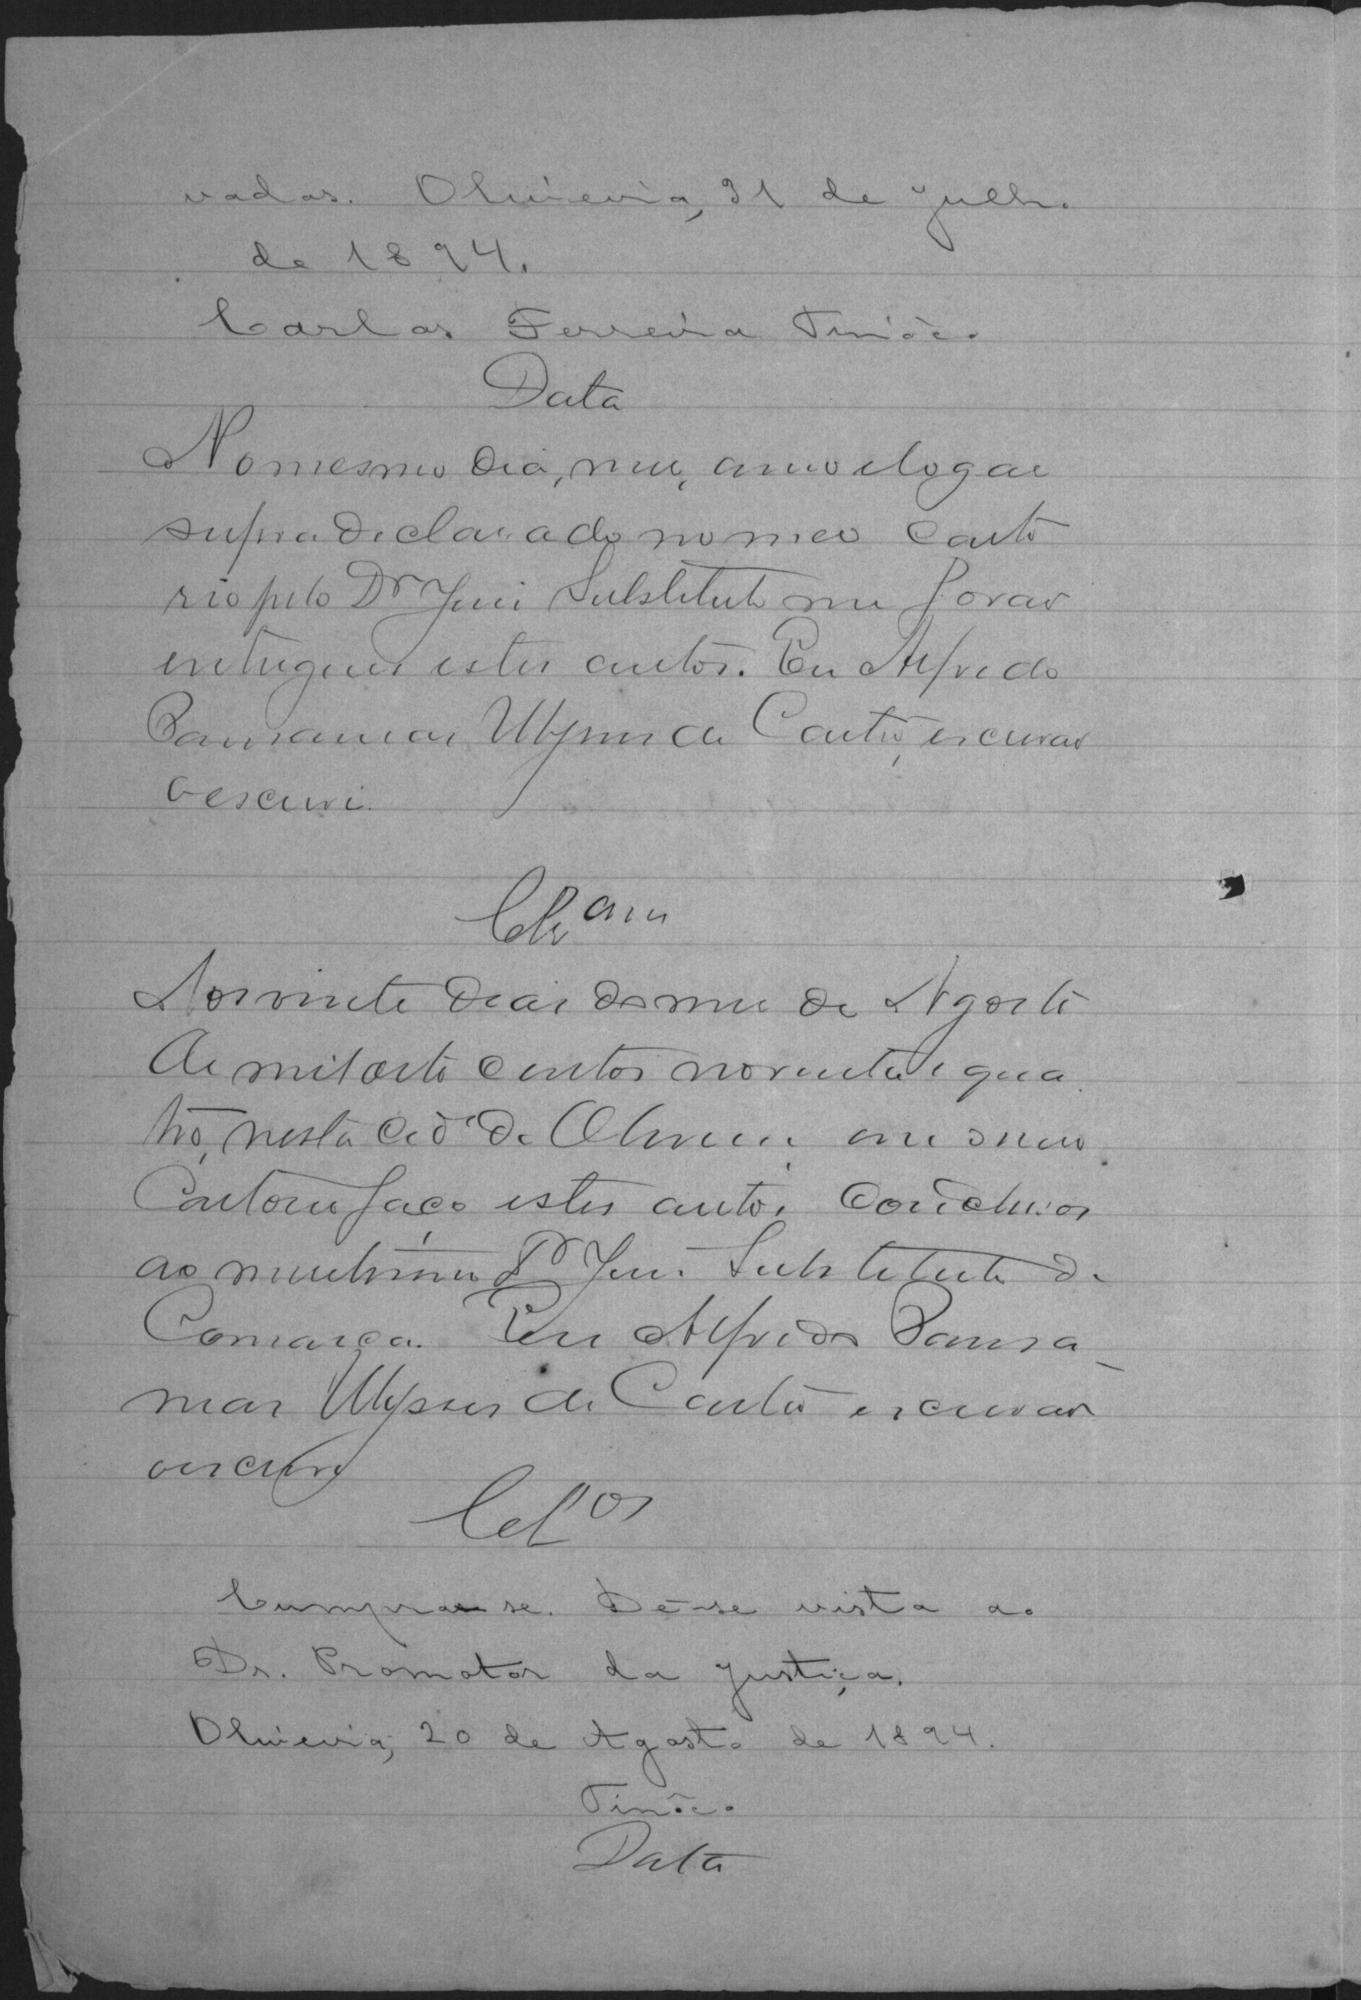 vadas. Oliveira, 31 de julho
de 1894.
Carlos Ferreira Tinôco
Data
No mesmo dia, mez, anno e logar
supra declarado no meo carto
rio pelo Dr Juiz Substituto me forao
entregues estes autos. Eu Alfredo
Ulysses de Castro, escrivao
o escrevi.
Clzam
Aos vinte dias do mez de Agosto
de mil oito centos noventa e qua
tro, nesta cide de Oliveira, em o meo
Cartorio faço estes autos conclusos
ao meritissimo Dr Juiz Substituto da
Comarca. Eu Alfredo
Ulysses de Castro escrivao
o escrevi
Clos
Cumpra-se. Dê-se vista ao
Dr. Promotor da justiça.
Oliveira, 20 de Agosto de 1894.
Tinôco
Data